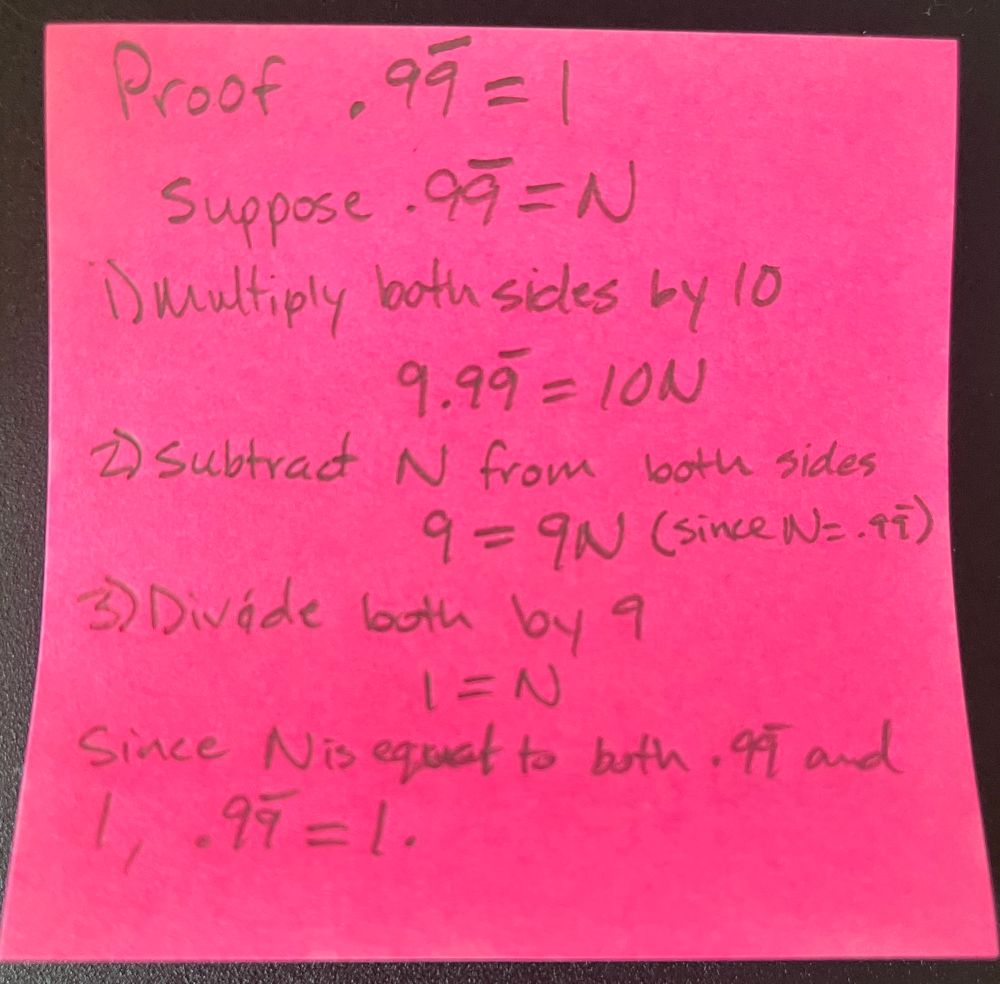 Proof .99̅ = 1
Suppose .99̅ = N
1) Multiply both sides by 10
9.99̅ = 10N
2) Subtract N from both sides
9 = 9N (since N = .99̅)
3) Divide both by 9
1 = N
Since N is equal to both .99̅ and
1, .99̅ = 1.